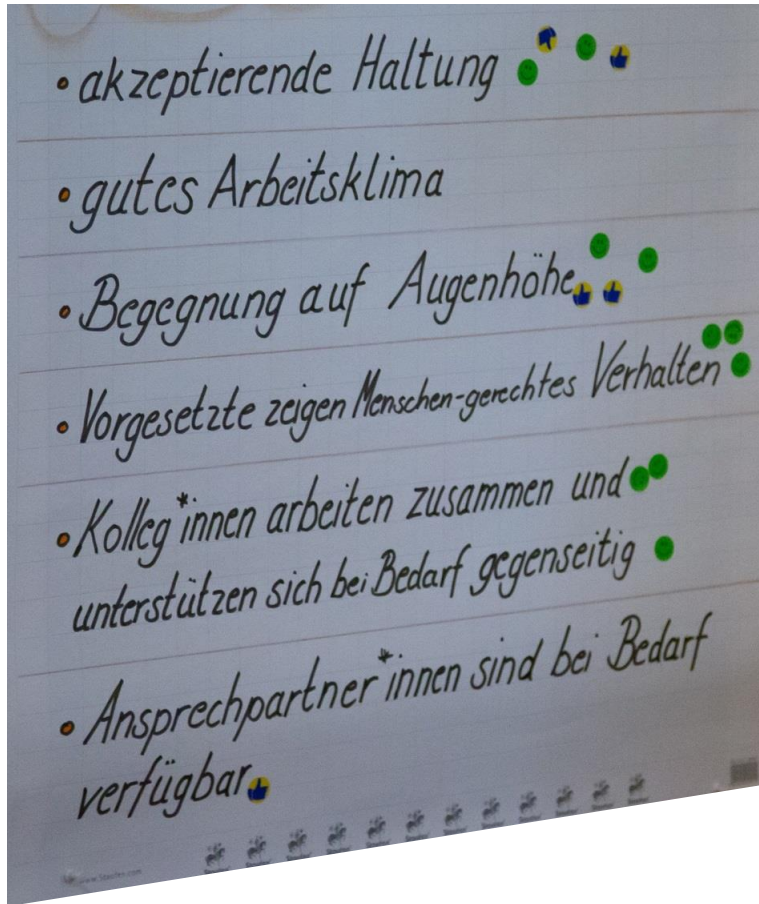 • akzeptierende Haltung
• gutes Arbeitsklima
• Begegnung auf Augenhöhe
• Vorgesetzte zeigen Menschen-gerechtes Verhalten
• Kolleg*innen arbeiten zusammen und
unterstützen sich bei Bedarf gegenseitig
• Ansprechpartner*innen sind bei Bedarf
verfügbar